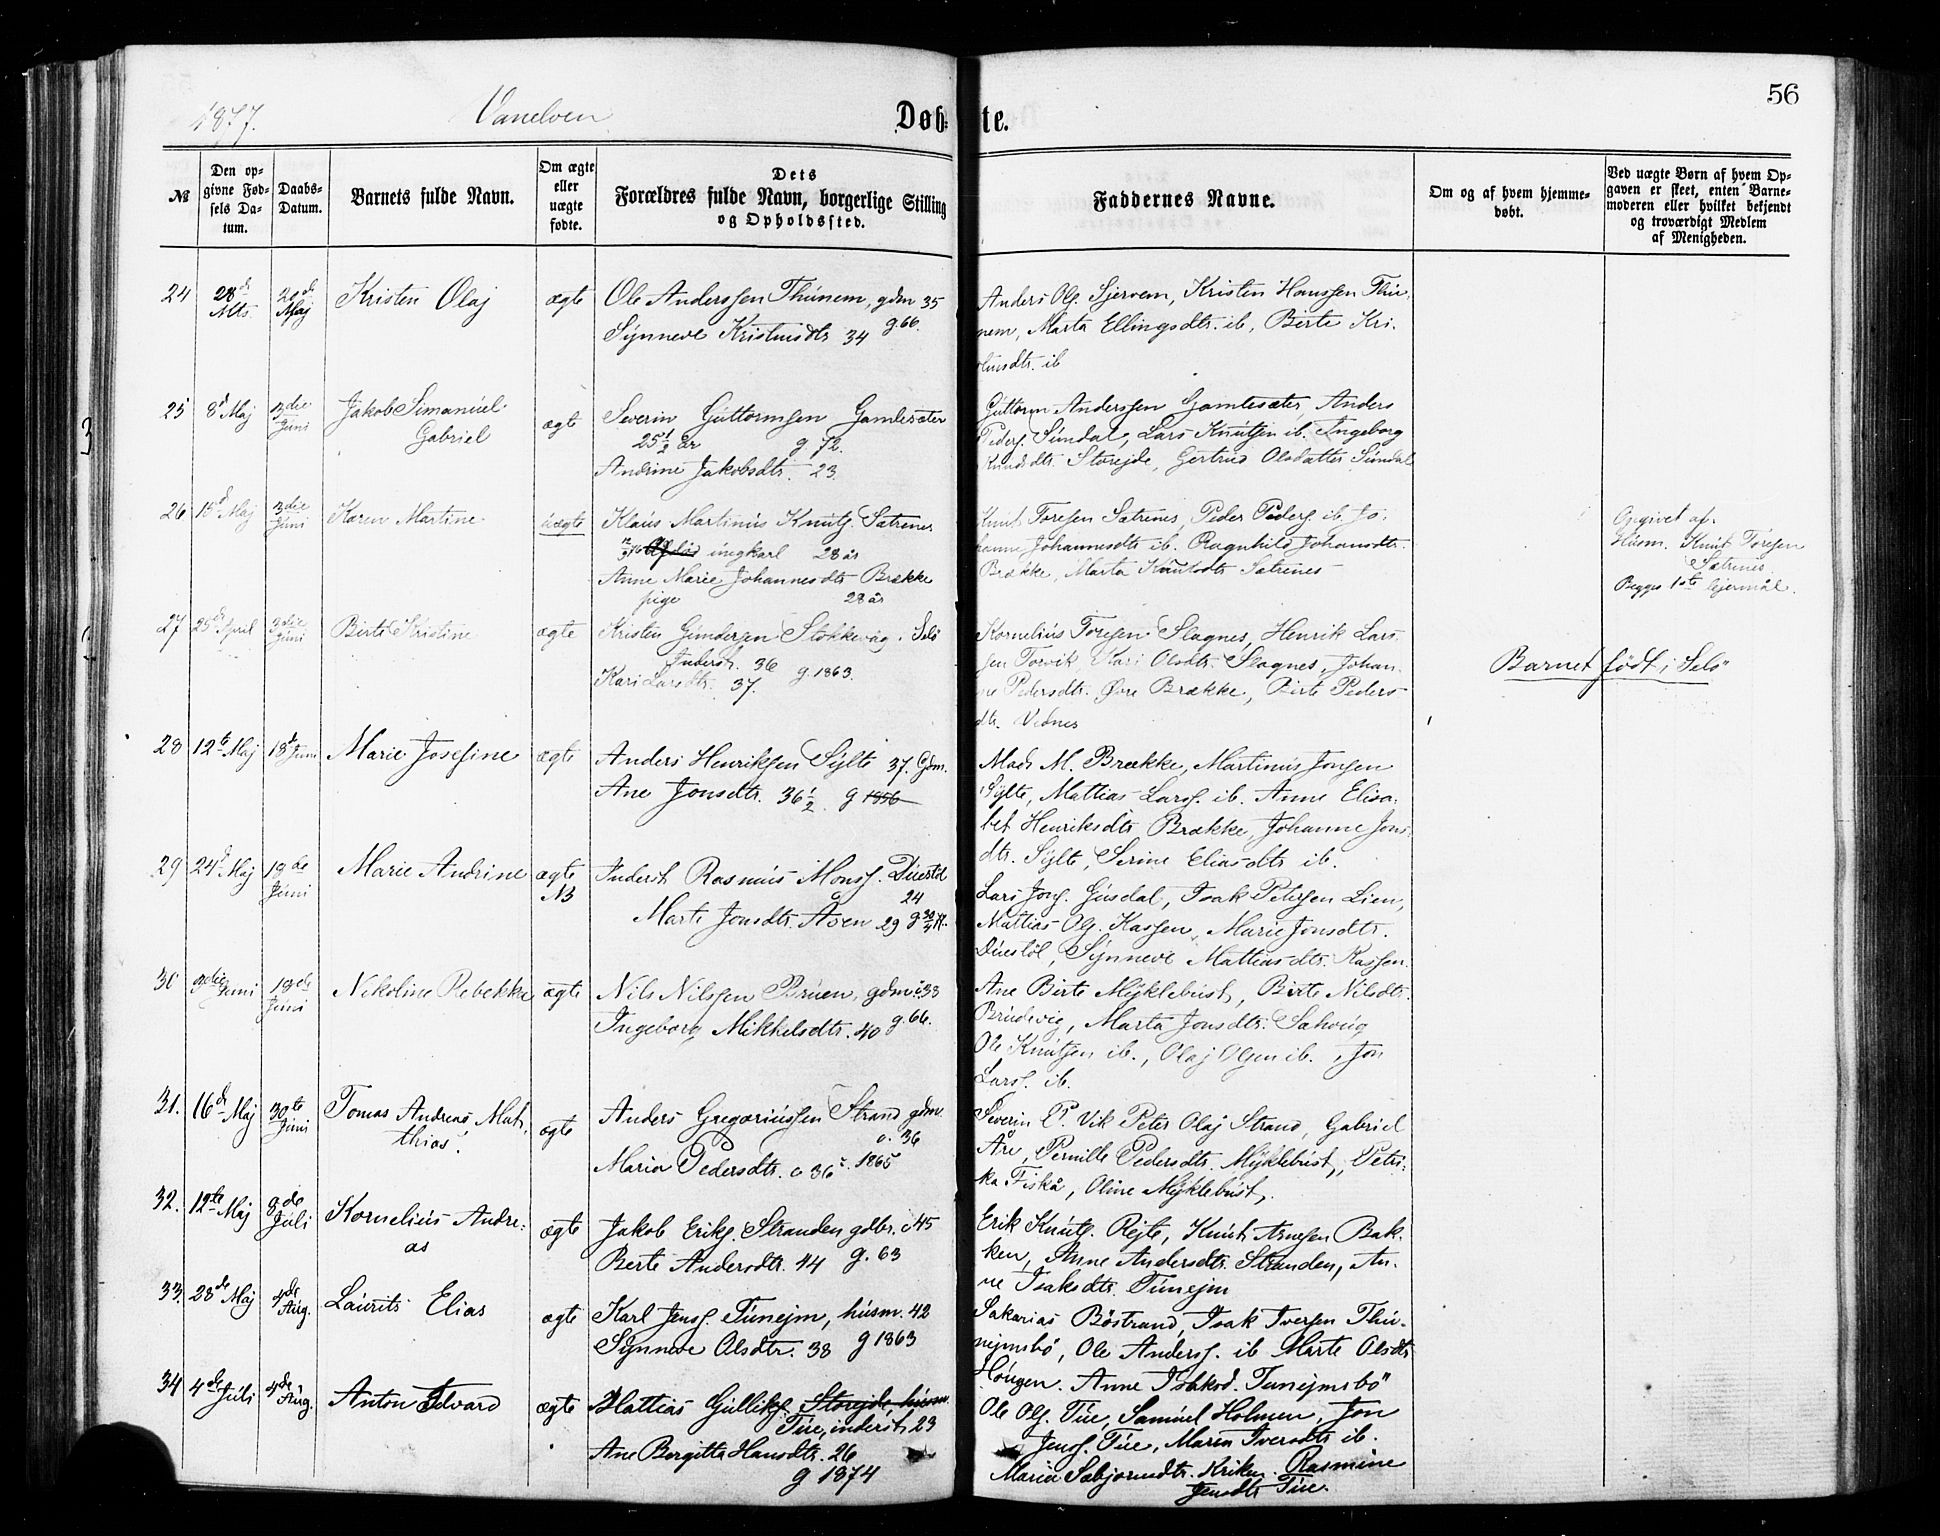 56
1877.
Vanelven
Døbte.
№
Den opgivne Fødsels Datum.
Daabs-Datum.
Barnets fulde Navn.
Om ægte eller uægte fødte.
Dets Forældres fulde Navn, borgerlige Stilling og Opholdssted.
Faddernes Navne.
Om og af hvem hjemmedøbt.
Ved uægte Børn af hvem Opgaven er skeet, enten Barnemoderen eller hvilket bekjendt og troværdigt Medlem af Menigheden.
24 28d Mts. 20de Maj Kristen Olaj ægte Ole Anderssen Thunem, gdm 35
Synneve Kristensdtr 34 g. 66.
Anders Ols. Sjervem, Kristen Hanssen Thu-
nem, Marta Ellingsdtr. ib, Birte Kri-
stensdtr. ib
25 8d Maj 3die Juni Jakob Simanuel
Gabriel
ægte Severin Guttormsen Gamlesæter
25½ år g 72.
Andrine Jakobsdtr. 23.
Guttorm Anderssen Gamlesæter, Anders
Peders. Sundal, Lars Knutsen ib. Ingeborg
Knudsdtr. Storejde, Gertrud Olsdatter Sundal
26 15d Maj 3die Juni Karen Martine uægte Klaus Martinus Knuts. Sætrenes
ungkarl 28 år
Anne Marie Johannesdtr Brække
pige 28 år
Knut Toresen Sætrenes, Peder Peders. ib. Jo-
hanne Johannesdtr ib. Ragnhild Johansdtr.
Brække, Marta Knutsdtr Sætrenes
Opgivet af
Husm. Knut Toresen
Sætrenes.
Begges 1ste lejermål.
27 25de April 3die Juni Birte Kristine ægte Kristen Gundersen Stokkevåg. Selø
Inderst. 36 g. 1863.
Kari Larsdtr. 37.
Kornelius Toresen Slagnes, Henrik Lars-
sen Torvik, Kari Olsdtr. Slagnes, Johan-
ne Pedersdtr. Øvre Brække, Birte Peders-
dtr. Vednes
Barnet født i Selø
28 12te Maj 18de Juni Marie Josefine ægte Anders Henriksen Sylte 37. Gdm.
Ane Jonsdtr. 36½. g 1856
Mads M. Brække, Martinus Jonsen
Sylte, Mattias Larss. ib. Anne Elisa-
bet Henriksdtr Brække, Johanne Jons-
dtr. Sylte, Serine Eliasdtr ib.
29 24d Maj 18de Juni Marie Andrine ægte
NB
Inderst Rasmus Monss. Duestøl
24
Marte Jonsdtr. Åsen 29
Lars Jons. Gusdal, Isak Petersen Lien,
Mattias Ols. Kassen, Marie Jonsdtr.
Duestøl, Synneve Mattiasdtr. Kassen.
30 3die Juni 18de Juni Nikoline Rebekka ægte Nils Nilssen Bruen, gdm: 33
Ingeborg Mikkelsdtr. 40 g. 66.
Ane Birte Myklebust, Birte Nilsdtr.
Brudevig, Marta Jonsdtr. Sahvig
Ole Knutsen ib., Olaj Olsen ib., Jon
Larss. ib.
31. 16de Maj 30te Juni Tomas Andreas Mat-
thias.
ægte Anders Gregoriussen Strand gdm.
o. 36
Maria Pedersdtr. o 36 g. 1865
Severin P. Vik Peter Olaj Strand, Gabriel
Åre, Pernille Pedersdtr. Myklebust, Petri-
ka Fiskå, Oline Myklebust,
32. 12te Maj 8de Juli Kornelius Andre-
as
ægte Jakob Eriks. Stranden gdbr. o 45
Berte Andersdtr. 44 g. 63
Erik Knuts. Rejte, Knut Arnesen Bak-
ken, Anne Andersdtr. Stranden, An-
ne Isaksdtr. Tunejm
33. 28de Maj 4de Aug. Laurits Elias ægte Karl Jenss. Tunejm, husm. 42
Synneve Olsdtr. 38 g 1863
Sakarias Bøstrand, Isak Iversen Thu-
nejmsbø, Ole Anderss. ib Marte Olsdtr
Haugen. Anne Isaksd. Tunejmsbø
34 4de Juli 4de Aug. Anton Edvard ægte Mattias Gulliks. Storejde, husm.
Tue, inderst, 23
Ane Bergitta Hansdtr. 26
g 1874
Ole Ols. Tue, Samuel Holmen, Jon
Jenss. Tue, Maren Iversdtr ib.
Maria Sæbjørnsdtr. Kriken Rasmine
Jensdtr Tue.